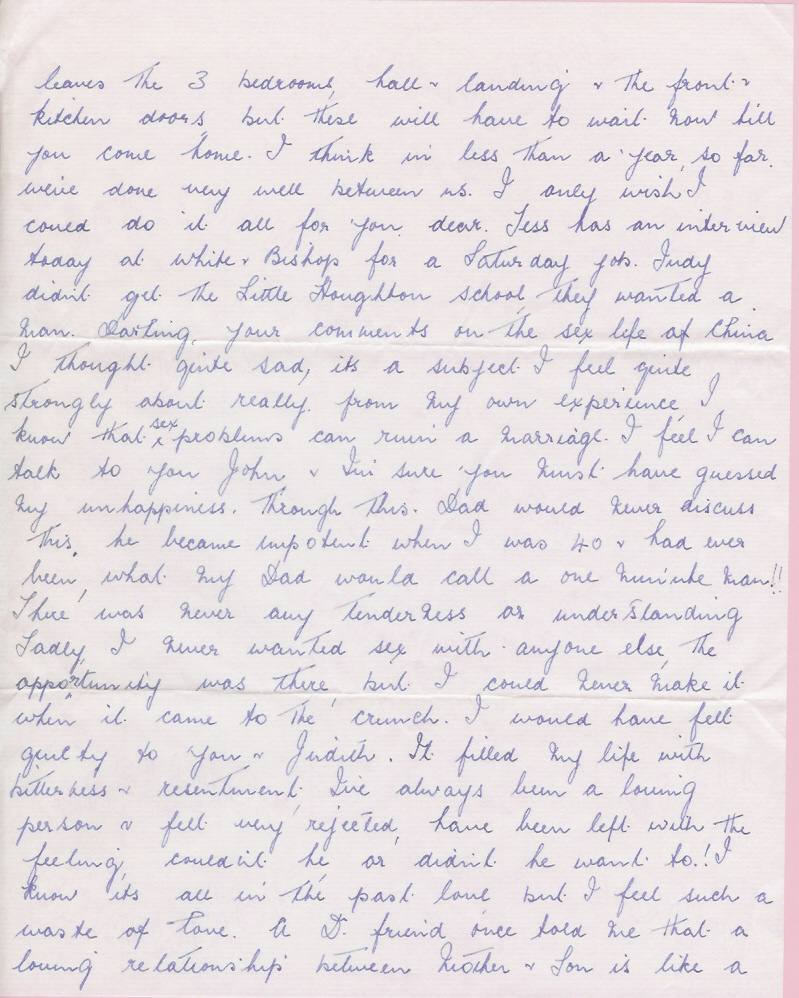 leaves the 3 bedrooms, hall & landing & the front &
kitchen doors, but these will have to wait now till
you come home. I think in less than a year, so far,
we've done very well between us. I only wish I
could do it all for you dear. Tess has an interview
today at White & Bishop for a Saturday job. Judy
didn't get the Little Houghton school, they wanted a
man. Darling, your comments on the sex life of China
I thought quite sad, its a subject I feel quite
strongly about really, from my own experience, I
know that sex problems can ruin a marriage. I feel I can
talk to you John & I'm sure you must have guessed
my unhappiness. Through this. Dad would never discuss
this, he became impotent when I was 40 & had ever
been, what my Dad would call a one minute man!!
There was never any tenderness or understanding
Sadly, I never wanted sex with anyone else, the
opportunity was there, but I could never make it
when it came to the crunch. I would have felt
guilty to you & Judith. It filled my life with
bitterness & resentment, I've always been a loving
person & felt very rejected, have been left with the
feeling, couldn't he or didn't he want to.! I
know its all in the past love but I feel such a
waste of love. A D. friend once told me that a
loving relationship between Mother & Son is like a